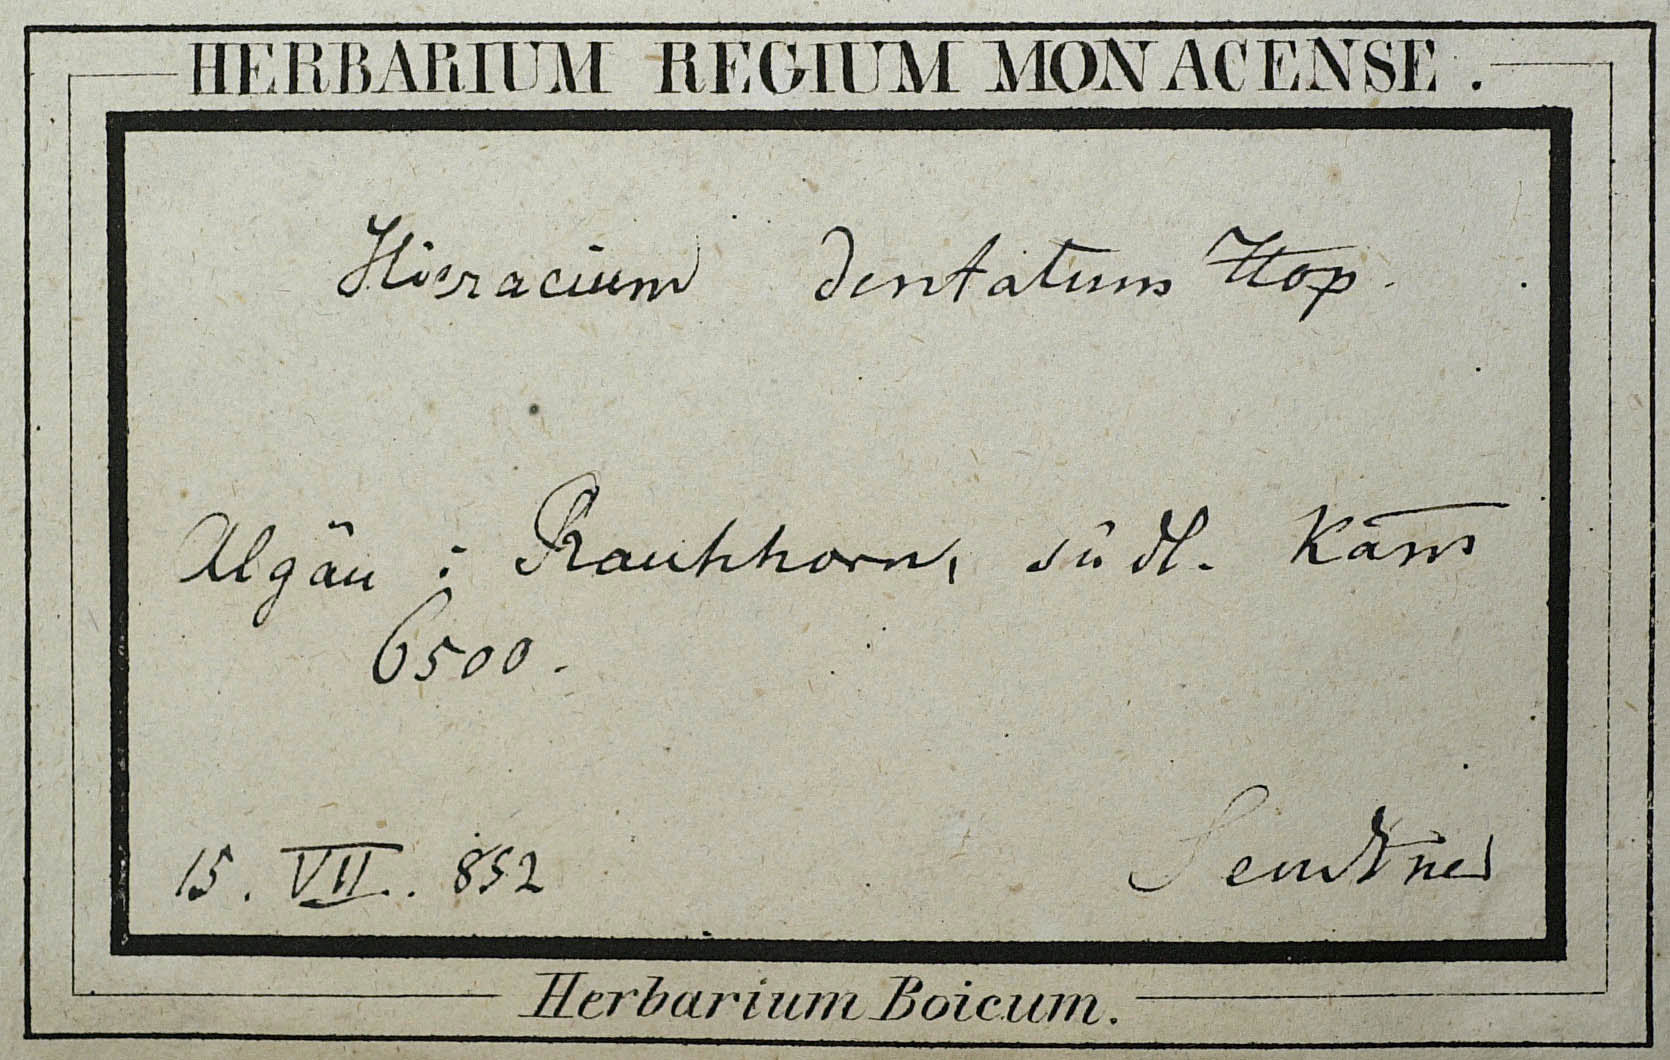 HERBARIUM REGIUM MONACENSE.
Hieracium dentatum Hop.
Algäu: Rauhhorn, südl.
6500.
15. VII. 852 Sendtner
Herbarium Boicum.